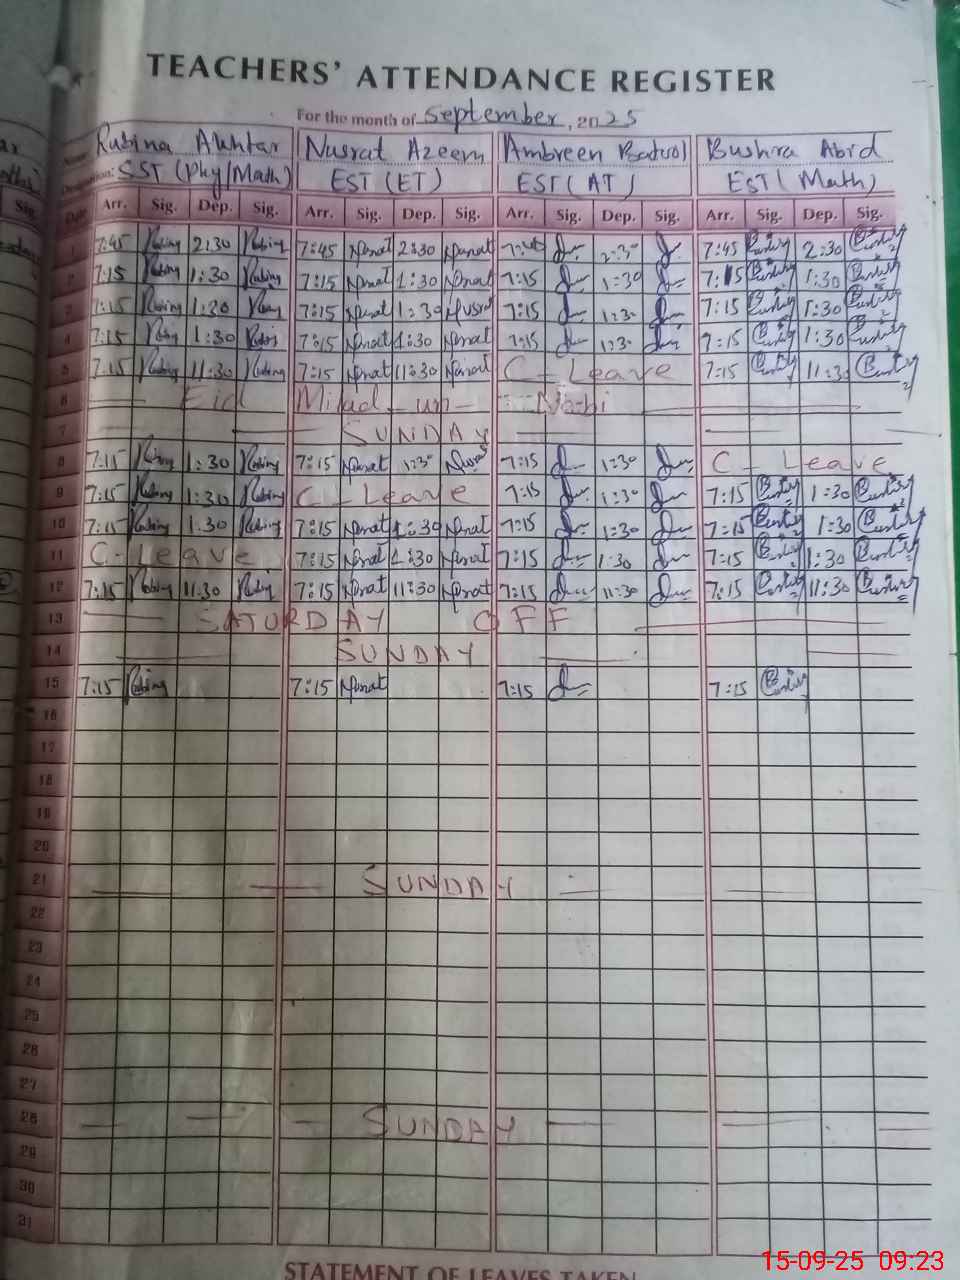 TEACHERS' ATTENDANCE REGISTER
For the month of September, 2025
Name: Rubina Akhtar Nusrat Azeem Ambreen Batool Bushra Abid
Designation: SST (Phy/Math) EST (ET) EST (AT) EST (Math)
Date Arr. Sig. Dep. Sig. Arr. Sig. Dep. Sig. Arr. Sig. Dep. Sig. Arr. Sig. Dep. Sig.
1 7:45 Rubina 2:30 Rubina 7:45 Nusrat 2:30 Nusrat 7:45 2:30 7:45 Bushra 2:30 Bushra
2 7:15 Rubina 1:30 Rubina 7:15 Nusrat 1:30 Nusrat 7:15 1:30 7:15 Bushra 1:30 Bushra
3 7:15 Rubina 1:30 Rubina 7:15 Nusrat 1:30 Nusrat 7:15 1:30 7:15 Bushra 1:30 Bushra
4 7:15 Rubina 1:30 Rubina 7:15 Nusrat 1:30 Nusrat 7:15 1:30 7:15 Bushra 1:30 Bushra
5 7:15 Rubina 11:30 Rubina 7:15 Nusrat 11:30 Nusrat C-Leave 7:15 Bushra 11:30 Bushra
6 Eid Milad-un-Nabi
7 SUNDAY
8 7:15 Rubina 1:30 Rubina 7:15 Nusrat 1:30 Nusrat 7:15 1:30 C-Leave
9 7:15 Rubina 1:30 Rubina C-Leave 7:15 1:30 7:15 Bushra 1:30 Bushra
10 7:15 Rubina 1:30 Rubina 7:15 Nusrat 1:30 Nusrat 7:15 1:30 7:15 Bushra 1:30 Bushra
11 C-Leave 7:15 Nusrat 1:30 Nusrat 7:15 1:30 7:15 Bushra 1:30 Bushra
12 7:15 Rubina 11:30 Rubina 7:15 Nusrat 11:30 Nusrat 7:15 11:30 7:15 Bushra 11:30 Bushra
13 SATURDAY OFF
14 SUNDAY
15 7:15 Rubina 7:15 Nusrat 7:15 7:15 Bushra
16
17
18
19
20
21 SUNDAY
22
23
24
25
26
27
28 SUNDAY
29
30
31
STATEMENT OF LEAVES TAKEN
15-09-25 09:23